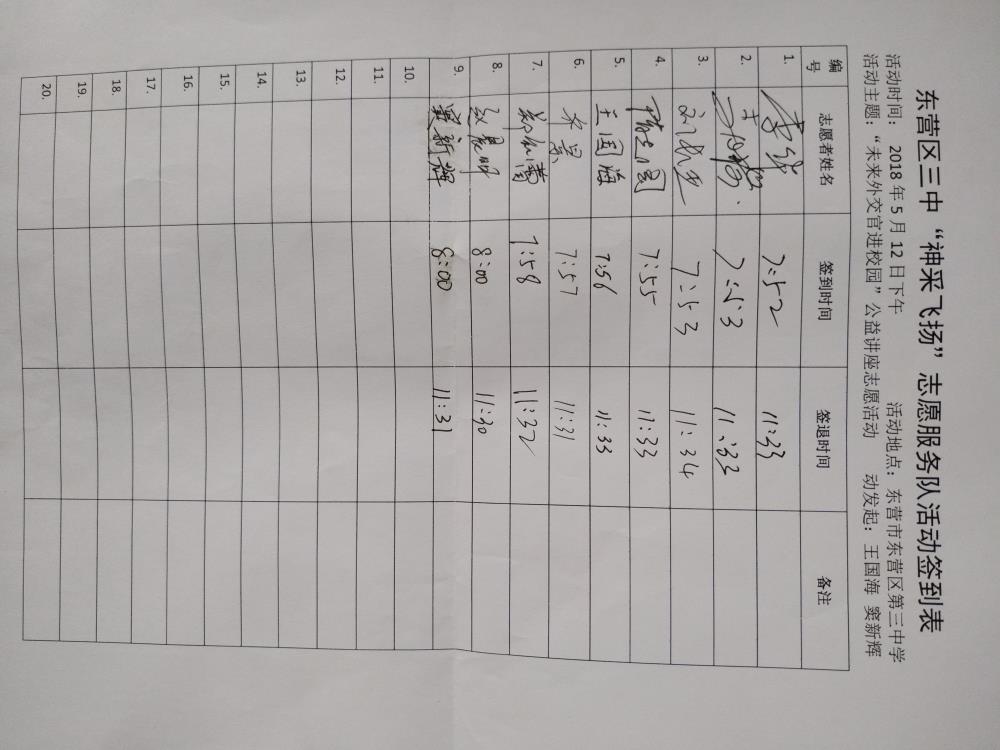 东营区三中“神采飞扬”志愿服务队活动签到表
活动时间： 2018年5月12日下午 活动地点：东营市东营区第三中学
活动主题：“未来外交官进校园”公益讲座志愿活动 动发起：王国海 窦新辉
编号 志愿者姓名 签到时间 签退时间 备注
1. 7:52 11:33
2. 7:53 11:33
3. 7:53 11:34
4. 7:55 11:33
5. 王国海 7:56 11:33
6. 7:57 11:31
7. 7:58 11:32
8. 赵晨明 8:00 11:30
9. 窦新辉 8:00 11:31
10.
11.
12.
13.
14.
15.
16.
17.
18.
19.
20.